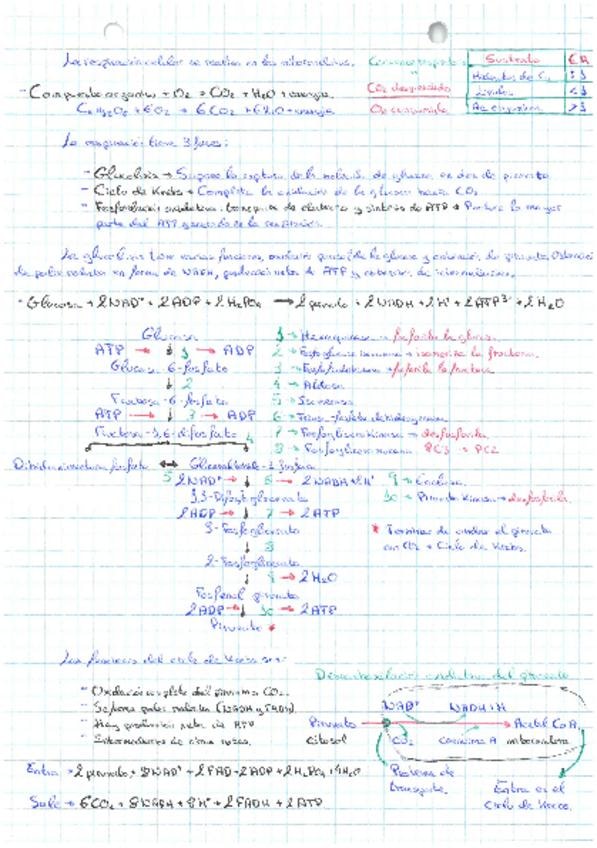 La respiración celular se realiza en las mitocondrias.
Sustrato CR
Hidratos de C. = 1
Lípidos < 1
Ac orgánicos > 1
- Compuesto orgánico + O2 → CO2 + H2O + energía.
CO2 desprendido
O2 consumido
C6H12O6 + 6O2 → 6CO2 + 6H2O + energía
La respiración tiene 3 fases:
- Glucólisis → Supone la ruptura de la molécula de glucosa en dos de piruvato
- Ciclo de Krebs → Completa la oxidación de la glucosa hasta CO2
- Fosforilación oxidativa: transporte de electrones y síntesis de ATP → Produce la mayor
parte del ATP generado en la respiración.
La glucólisis tiene varias funciones, oxidación parcial de la glucosa y obtención de piruvato. Obtención
de poder reductor en forma de NADH, producción neta de ATP y obtención de intermediarios.
- Glucosa + 2NAD+ + 2ADP + 2H2PO4 → 2 piruvato + 2NADH + 2H+ + 2ATP + 2H2O
Glucosa
ATP → 1 → ADP
Glucosa-6-fosfato
2
Fructosa-6-fosfato
ATP → 3 → ADP
Fructosa-1,6-difosfato
4
Dihidroxiacetona fosfato ↔ Gliceraldehído-3-fosfato
5 2NAD+ → 6 → 2NADH + 2H+
1,3-Difosfoglicerato
2ADP → 7 → 2ATP
3-Fosfoglicerato
8
2-Fosfoglicerato
9 → 2H2O
Fosfoenol piruvato
2ADP → 10 → 2ATP
Piruvato *
1 → Hexoquinasa → fosforila la glucosa.
2 → Fosfoglucosa isomerasa → isomeriza la fructosa.
3 → Fosfofructokinasa → fosforila la fructosa
4 → Aldolasa
5 → Isomerasa
6 → fosfato deshidrogenasa
7 → Fosfoglicerokinasa → desfosforila.
8 → Fosfogliceromutasa PC3 → PC2
9 → Enolasa
10 → Piruvato Kinasa → desfosforila.
* Termina de oxidar el piruvato
en CO2 → Ciclo de Krebs.
Las funciones del ciclo de Krebs son:
- Oxidación completa del piruvato a CO2.
- Se forma poder reductor (NADH y FADH).
- Hay producción neta de ATP
- Intermediarios de otras rutas.
Entra → 2 piruvato + 8NAD+ + 2FAD + 2ADP + 2H2PO4 + 4H2O
Sale → 6CO2 + 8NADH + 8H+ + 2FADH + 2ATP
Descarboxilación oxidativa del piruvato
NAD+ NADH+H
Piruvato → Acetil CoA
Citosol CO2 coenzima A mitocondria
Proteína de
transporte.
Entra en el
Ciclo de Krebs.